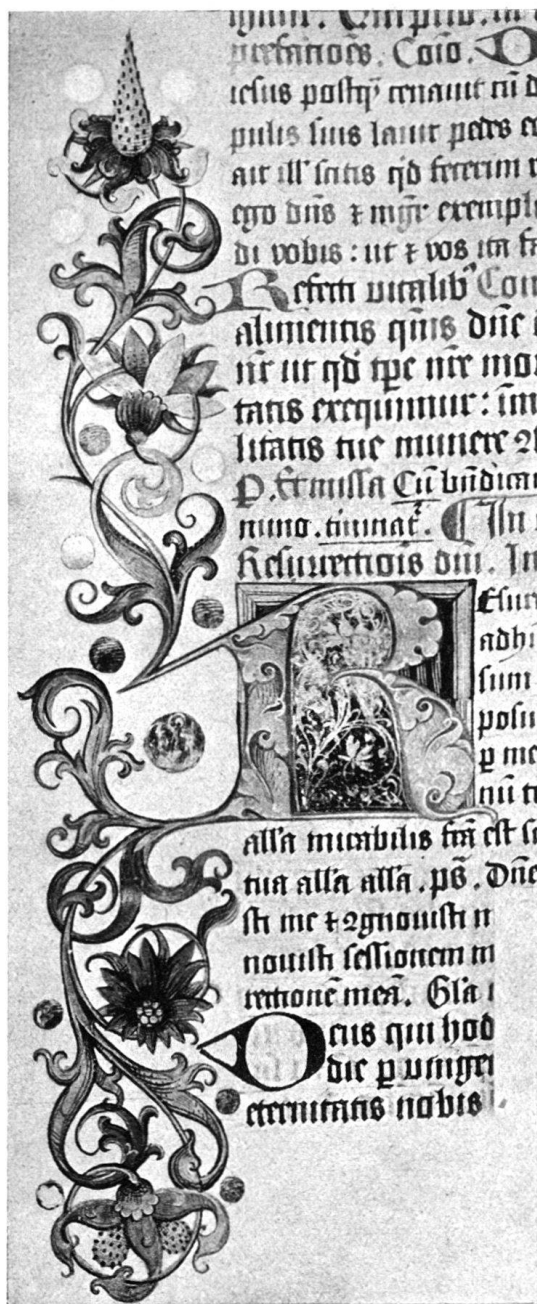 prefatiões. Cõio. D
iesus postqȝ cenauit cũ d
pulis suis lauit pedes e
ait ill' scitis qđ fecerim v
ego dñs ⁊ mgr̄ exempl
di vobis: ut ⁊ vos ita fa
Refecti vitalib' Com
alimentis q̄ms dñe d
nr̄ ut qđ tp̄e nr̄e mor
tatis exequimur: im̄
litatis tue munere ꝯ
P. Et missa Cũ bñdicam
mino. ¶ In
Resurrectiõis dñi. In
Esurr
adhu
sum
posui
ꝑ me
alľa mirabilis fc̃a est sc
tua alľa alľa. pš. Dñe
sti me ⁊ ꝯgnouisti
nouisti sessionem m
rectionē meā. Gľa
Deus qui hod
die ꝑ vnige
eternitatis nobis